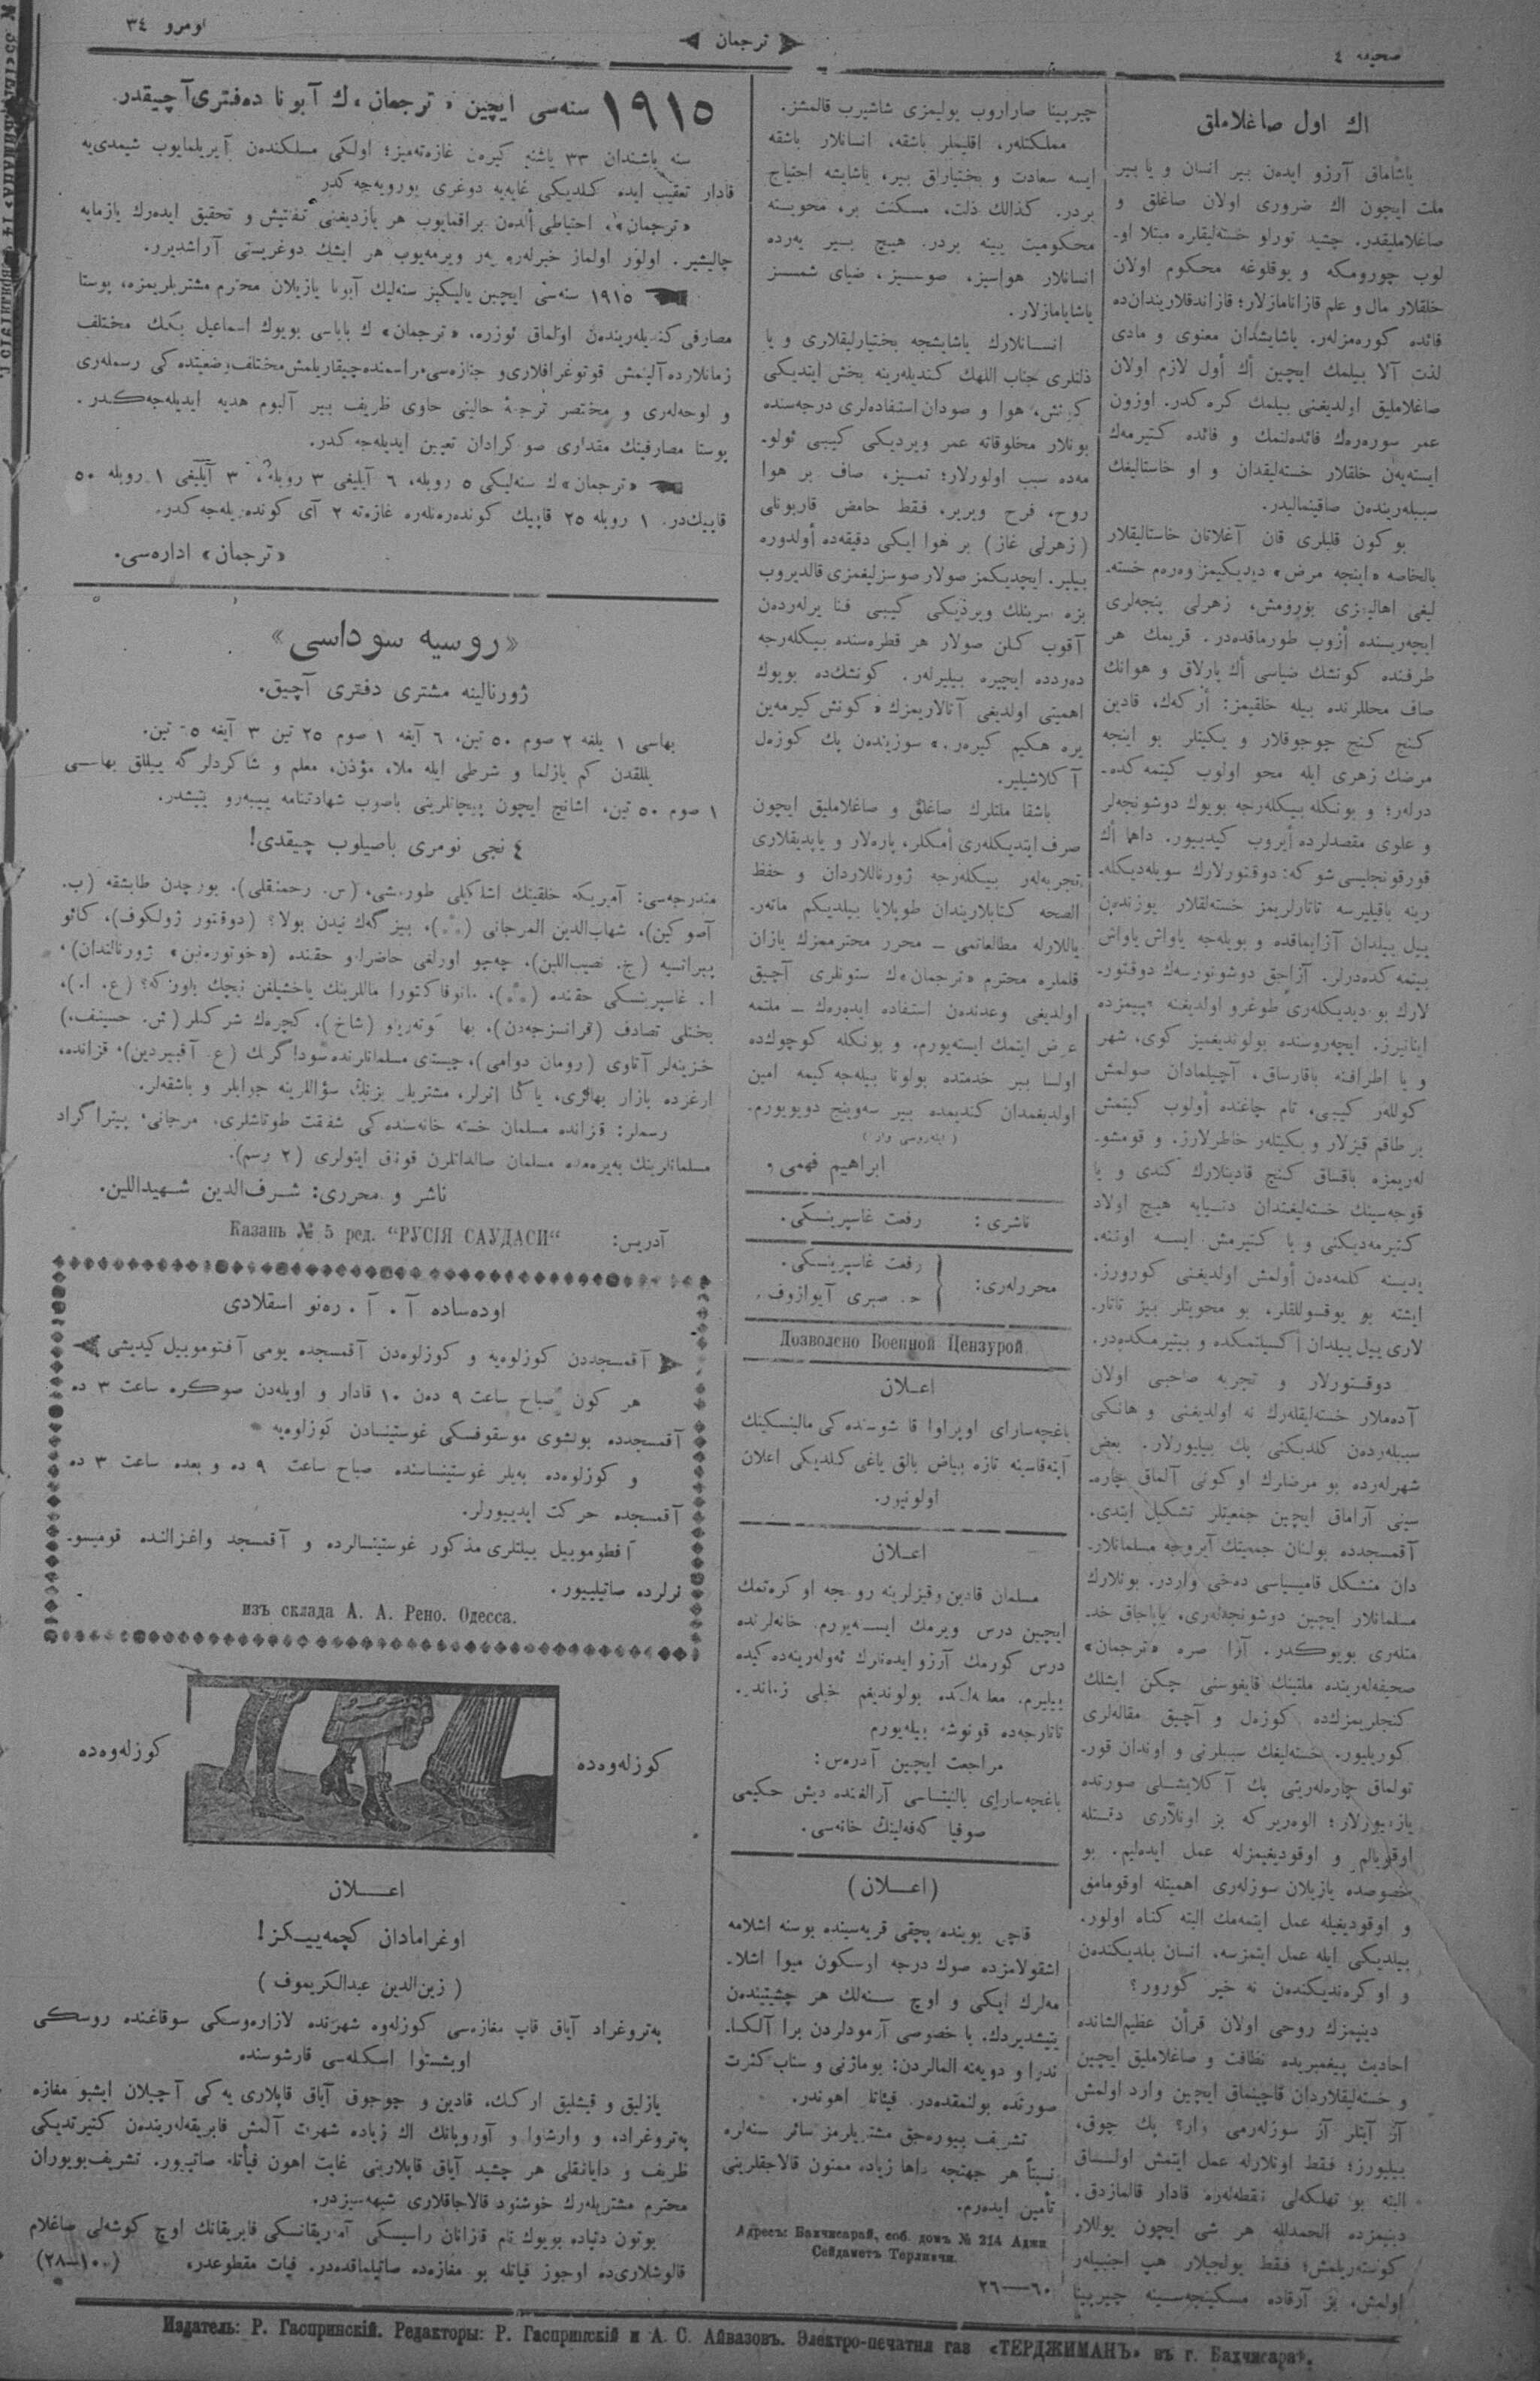 صحیفه ٤
ترجمان
نومرو ٣٤
اڭ اول صاغلاملق
یاشاماق آرزو ایدەن بیر انسان و یا بیر
ملت ایچون اڭ ضروری اولان صاغلق و
صاغلاملیقدر. چشید تورلو خستەلیقلرە مبتلا او-
لوب چورومکە و یوقلوغە محکوم اولان
خلقلار مال و علم قازانامازلار؛ قازاندقلاریندان‌دە
فائدە کورەمزلەر. یاشایشدان معنوی و مادی
لذت آلا بیلمك ایچین اڭ أول لازم اولان
صاغلاملیق اولدیغنی بیلمك کرەکدر. اوزون
عمر سورەرەك فائدەلنمك و فائدە کتیرمەك
ایستەیەن خلقلار خستەلیقدان و او خاستالیغڭ
سببلەریندەن صاقینمالیدر.
بو کون قلبلری قان آغلاتان خاستالیقلار
بالخاصە «اینجە مرض» دیدیکیمز وەرەم خستە-
ایچەریسندە أزوب طورماقدەدر. قریمڭ هر
طرفندە کونشڭ ضیاسی اڭ پارلاق و هوانڭ
صاف محللرندە بیلە خلقیمز: أرکەك، قادین
کنج کنج چوجوقلار و یکیتلر بو اینجە
مرضڭ زهری ایلە محو اولوب کیتمەکدە-
درلەر؛ و بونکلە بیکلەرجە بویوك دوشونجەلر
و علوی مقصدلردە أیروب کیدییور. داها أڭ
قورقونجلیسی شو کە: دوقتورلارڭ سویلەدیکلە-
رینە باقیلیرسە تاتارلریمز خستەلقلار یوزندەن
ییل ییلدان آزایماقدە و بویلەجە یاواش یاواش
بیتمەکدەدرلر. آزاجق دوشونورسەك دوقتور-
لارڭ بو دیدیکلەری طوغرو اولدیغنە
اینانیرز. ایچەروسندە بولوندیغمیز کوی، شهر
و یا اطرافنە باقارساق، آچیلمادان صولمش
کوللەر کیبی، تام چاغندە أولوب کیتمش
بر طاقم قیزلار و یکیتلەر خاطرلارز. و قومشو-
لەریمزە باقساق کنج قادینلارڭ کندی و یا
قوجەسینڭ خستەلیغندان دنیایە هیچ اولاد
کتیرمەدیکنی و یا کتیرمش ایسە اوننە،
یدیسنە کلمەدەن أولمش اولدیغنی کورورز.
ایشتە بو یوقسوللقلر، بو محویتلر بیز تاتار-
لاری ییل ییلدان أکسیتمکدە و بیتیرمکدەدر.
دوقتورلار و تجربە صاحبی اولان
آدەملار خستەلیقلەرڭ نە اولدیغنی و هانکی
سببلەردەن کلدیکنی پك بیلیورلار. بعض
شهرلەردە بو مرضلرڭ اوکونی آلماق چارە-
سینی آراماق ایچین جمعیتلر تشکیل ایتدی.
آقمسجددە بولنان جمعیتڭ آیروجە مسلمانلار-
دان متشکل قامیسیاسی دەخی واردر. بونلارڭ
مسلمانلار ایچین دوشونجەلەری، یاپاجاق خد-
متلەری بویوکدر. آرا صرە «ترجمان»
صحیفەلەریندە ملتینڭ قایغوسنی چکن ایشلڭ
کنجلریمزڭدە کوزەل و آچیق مقالەلری
کوریلیور. خستەلیغڭ سببلرنی و اوندان قور-
تولماق چارەلەرینی پك آکلایشلی صورتدە
یازییورلار؛ الویریر کە بز اونلاری دقتلە
اوقویالم و اوقودیغیمزلە عمل ایدەلیم. بو
خصوصدە یازیلان سوزلەری اهمیتلە اوقومامق
و اوقودیغیلە عمل ایتمەمك البتە کناە اولور.
بیلدیکی ایلە عمل ایتمزسە، انسان بلدیکندەن
و اوکرەندیکندەن نە خیر کورور؟
دینیمزڭ روحی اولان قرأن عظیم‌الشاندە
احادیث پیغمبریدە نظافت و صاغلاملیق ایچین
و خستەلیقلاردان قاچینماق ایچین وارد اولمش
آز آیتلر آز سوزلەرمی وار؟ پك چوق،
بیلیورز؛ فقط اونلارلە عمل ایتمش اولسـاق
البتە بو تهلکەلی نقطەلەرە قادار قالمازدق.
دینیمزدە الحمدللە هر شی ایچون یوللار
کوستەریلمش؛ فقط یولجیلار هپ اجنبیلەر
اولمش، بز آرقادە مسکینجەسینە چیرپینا
چیرپینا صاراروب یولیمزی شاشیرب قالمشز.
مملکتلەر، اقلیملر باشقە، انسانلار باشقە
ایسە سعادت و بختیارلق بیر، یاشایشە احتیاج
بردر. کذالك ذلت، مسکنت بر، محویتە
محکومیت یینە بردر. هیچ بیر یەردە
انسانلار هواسیز، صوسیز، ضیای شمسسز
یاشایامازلار.
انسانلارڭ یاشایشجە بختیارلیقلاری و یا
ذلتلری جناب اللهڭ کندیلەرینە بخش ایتدیکی
کونش، هوا و صودان استفادەلری درجەسندە
بونلار مخلوقاتە عمر ویردیکی کیبی ئولو-
مەدە سبب اولورلار؛ تمیز، صاف بر هوا
روح، فرح ویریر، فقط حامض قاربونلی
(زهرلی غاز) بر هوا ایکی دقیقەدە أولدورە
بیلیر. ایچدیکمز صولار صوسزلیغمزی قالدیروب
بزە سرینلك ویردیکی کیبی فنا یرلەردەن
آقوب کلن صولار هر قطرەسندە بیکلەرجە
دەرددە ایچیرە بیلیرلەر. کونشڭ‌دە بویوك
اهمیتی اولدیغی آتالاریمزڭ «کونش کیرمەین
یرە هکیم کیرەر.» سوزیندەن پك کوزەل
آکلاشیلیر.
باشقا ملتلرڭ صاغلق و صاغلاملیق ایچون
صرف ایتدیکلەری أمکلر، پارەلار و یاپدیقلاری
تجربەلەر بیکلەرجە ژورناللاردان و حفظ
الصحە کتابلاریندان طوپلایا بیلدیکم ماتەر-
یاللارلە مطالعاتمی — محرر محترممزڭ یازان
قلملرە محترم «ترجمان»ڭ ستونلری آچیق
اولدیغی وعدندەن استفادە ایدەرەك — ملتمە
عرض ایتمك ایستەیورم. و بونکلە کوچوك‌دە
اولسا بیر خدمتدە بولونا بیلەجەکیمە امین
اولدیغمدان کندیمدە بیر سەوینج دویویورم.
(ایلەروسی وار)
ابراهیم فهمی
ناشری: رفعت غاسپرینسکی.
محررلەری: رفعت غاسپرینسکی.
ح. صبری آیوازوف.
Дозволено Военной Цензурой
اعـلان
باغچەسارای اوپراوا قارشوسندەکی مالینسکینڭ
آپتەقاسینە تازە بیاض بالق یاغی کلدیکی اعلان
اولونیور.
اعـلان
مسلمان قادین و قیزلرینە روسجە اوکرەتمك
ایچین درس ویرمك ایستەیورم. خانەلرندە
درس کورمك آرزو ایدەنلرڭ ئەولەرینەدە کیدە
بیلیرم. معلمەلکدە بولوندیغم خیلی زماندر.
تاتارجەدە قونوشە بیلەیورم
مراجعت ایچین آدرەس:
باغچەسارای بالنیتساسی آرالغندە دیش حکیمی
صوفیا کەفەلینڭ خانەسی.
(اعـلان)
اشقولامزدە صوڭ درجە ارسکون میوا اشلا-
مەلرڭ ایکی و اوچ سنەلك هر چشیتیندەن
یتیشدیردك. با خصوصی آرمودلردن برا آلکسا-
صورتدە بولنمقدەدر. فیئاتلر اهوندر.
تشریف بیورەجق مشتریلرمز سائر سنەلرە
نسبتاً هر جهتچە داها زیادە ممنون قالاجقلرینی
تأمین ایدەرم.
Адресъ: Бахчисарай, соб. домъ № 214 Аджи
Сейдаметъ Терликчи.
٦٠—٢٦
١٩١٥ سنەسی ایچین «ترجمان»ڭ آبونا دەفتری آچیقدر.
سنە باشندان ٣٣ یاشنە کیرەن غازەتەمیز؛ اولکی مسلکندەن آیریلمایوب شیمدی‌یە
قادار تعقیب ایدە کلدیکی غایەیە دوغری یورویەجەکدر
«ترجمان»، احتیاطی ألدەن براقمایوب هر یازدیغنی تفتیش و تحقیق ایدەرك یازمایە
چالیشیر. اولور اولماز خبرلەرە یەر ویرمەیوب هر ایشڭ دوغریسنی آراشدیرر.
١٩١٥ سنەسی ایچین یالیکیز سنەلیك آبونا یازیلان محترم مشتریلریمزە، پوستا
مصارفی کندیلەریندەن اولماق ئوزرە، «ترجمان»ڭ باباسی بویوك اسماعیل بکڭ مختلف
زمانلاردە آلینمش فوتوغرافلاری و جنازەسی مراسمندە چیقاریلمش مختلف وضعیتدەکی رسملەری
و لوحەلەری و مختصر ترجمۀ حالینی حاوی ظریف بیر آلبوم هدیە ایدیلەجەکدر.
پوستا مصارفینڭ مقداری صوکرادان تعیین ایدیلەجەکدر.
«ترجمان»ڭ سنەلیکی ٥ روبلە، ٦ آیلیغی ٣ روبلە، ٣ آیلیغی ١ روبلە ٥٠
قاپیك‌در. ١ روبلە ٢٥ قاپیك کوندەرەنلەرە غازەتە ٢ آی کوندەریلەجەکدر.
«ترجمان» ادارەسی.
«روسیە سوداسی»
ژورنالینە مشتری دفتری آچیق.
بهاسی ١ یلغە ٢ صوم ٥٠ تین، ٦ آیغە ١ صوم ٢٥ تین ٣ آیغە ٧٥ تین.
یللقدن کم یازلما و شرطی ایلە ملا، مؤذن، معلم و شاکردلرگە ییللق بهاسی
١ صوم ٥٠ تین. اشانچ ایچون پیچاتلرینی باصوب شهادتنامە ییبەرو یتیشدر.
٤ نجی نومری باصیلوب چیقدی!
مندرجەسی: آمریکە خلقینڭ اشلکلی طورمشی، (س. رحمنقلی). یورچدن طابشقە (ب.
آصوکین)، شهاب‌الدین المرجانی، بیزگەك نیدن بولا؟ (دوقتور ژولکوف)، کائو
بختلی تصادف (فرانسزجەدن)، بها کوتەریلو (شاخ)، کچرەك شرکتلر (ش. حسینف.)
خزینەلر آتاوی (رومان دوامی)، چیستی مسلمانلرندە سودا گرلك (ع. آقبیردین)، قزاندە،
ارغزدە بازار بهالری، یاڭا اثرلر، مشتریلر بزنڭ، سؤاللرینە جوابلر و باشقەلر.
رسملر: قزاندە مسلمان خستە خانەسندەکی شفقت طوتاشلری، مرجانی، پیتراگراد
مسلمانلرینڭ بەیرەمدە مسلمان صالداتلرن قوناق ایتولری (٢ رسم).
ناشر و محرری: شرف‌الدین شهیداللین.
آدریس: Казань № 5 ред. "РУСІЯ САУДАСИ"
اودەسادە آ. آ. رەنو اسقلادی
آقمسجددن کوزلوەیە و کوزلوەدن آقمسجدە یومی آفتوموبیل کیدیشی
هر کون صباح ساعت ٩ دەن ١٠ قادار و اویلەدن صوکرە ساعت ٣ دە
آقمسجددە بولشوی موسقوفسکی غوستینسادن کوزلوەیە
و کوزلوەدە بەیلر غوستینساسندە صباح ساعت ٩ دە و بعدە ساعت ٣ دە
آقمسجدە حرکت ایدییورلر.
آفطوموبیل بیلتلری مذکور غوستینسالردە و آقمسجد واغزالندە قومیسو-
نرلردە صاتیلییور.
изъ склада А. А. Рено. Одесса.
کوزلەوەدە
کوزلەوەدە
اعـلان
اوغرامادان کچمەییکز!
(زین‌الدین عبدالکریموف)
پەتروغراد آیاق قاپ مغازەسی کوزلەوە شهرندە لازارەوسکی سوقاغندە روسکی
اوبشستوا اسکلەسی قارشوسندە
یازلیق و قیشلیق ارکك، قادین و چوجوق آیاق قاپلاری یەکی آچیلان ایشبو مغازە
پەتروغراد، و وارشاوا و آوروپانڭ اڭ زیادە شهرت آلمش فابریقەلەریندەن کتیرتدیکی
ظریف و دایانقلی هر چشید آیاق قاپلارینی غایت اهون فیأتلە صاتییور. تشریف بویوران
محترم مشتریلەرڭ خوشنود قالاجاقلاری شبهەسیزدر.
بوتون دنیادە بویوك نام قازانان راسیسکی آمریقانسکی فابریقانڭ اوچ کوشەلی صاغلام
قالوشلاری‌دە اوجوز فیاتلە بو مغازەدە صاتیلماقدەدر. فیات مقطوعدر. (١٠٠—٢٨)
Издатель: Р. Гаспринскій. Редакторы: Р. Гаспринскій и А. С. Айвазовъ. Электро-печатня газ «ТЕРДЖИМАНЪ» въ г. Бахчисараѣ.